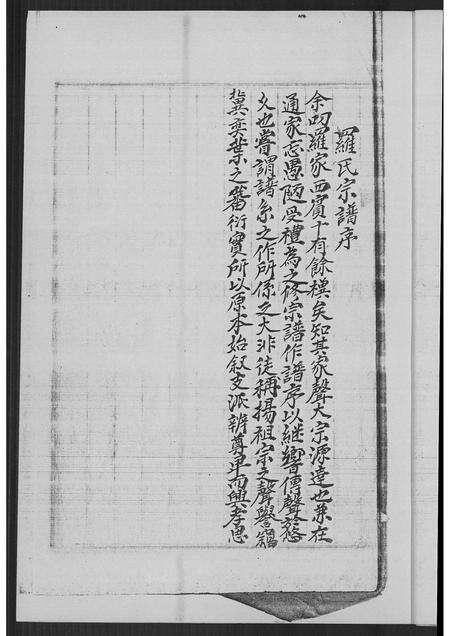 羅氏宗譜序
余叨羅家西賓十有餘樸矣知其家聲大宗源遠也兼在
通家忘愚陋受禮為之修宗譜作譜序以繼響傳聲於悠
久也嘗謂譜系之作所係之大非徒稱揚祖宗之聲譽
冀奕葉之蕃衍實所以原本始叙支派辨尊卑而興孝思